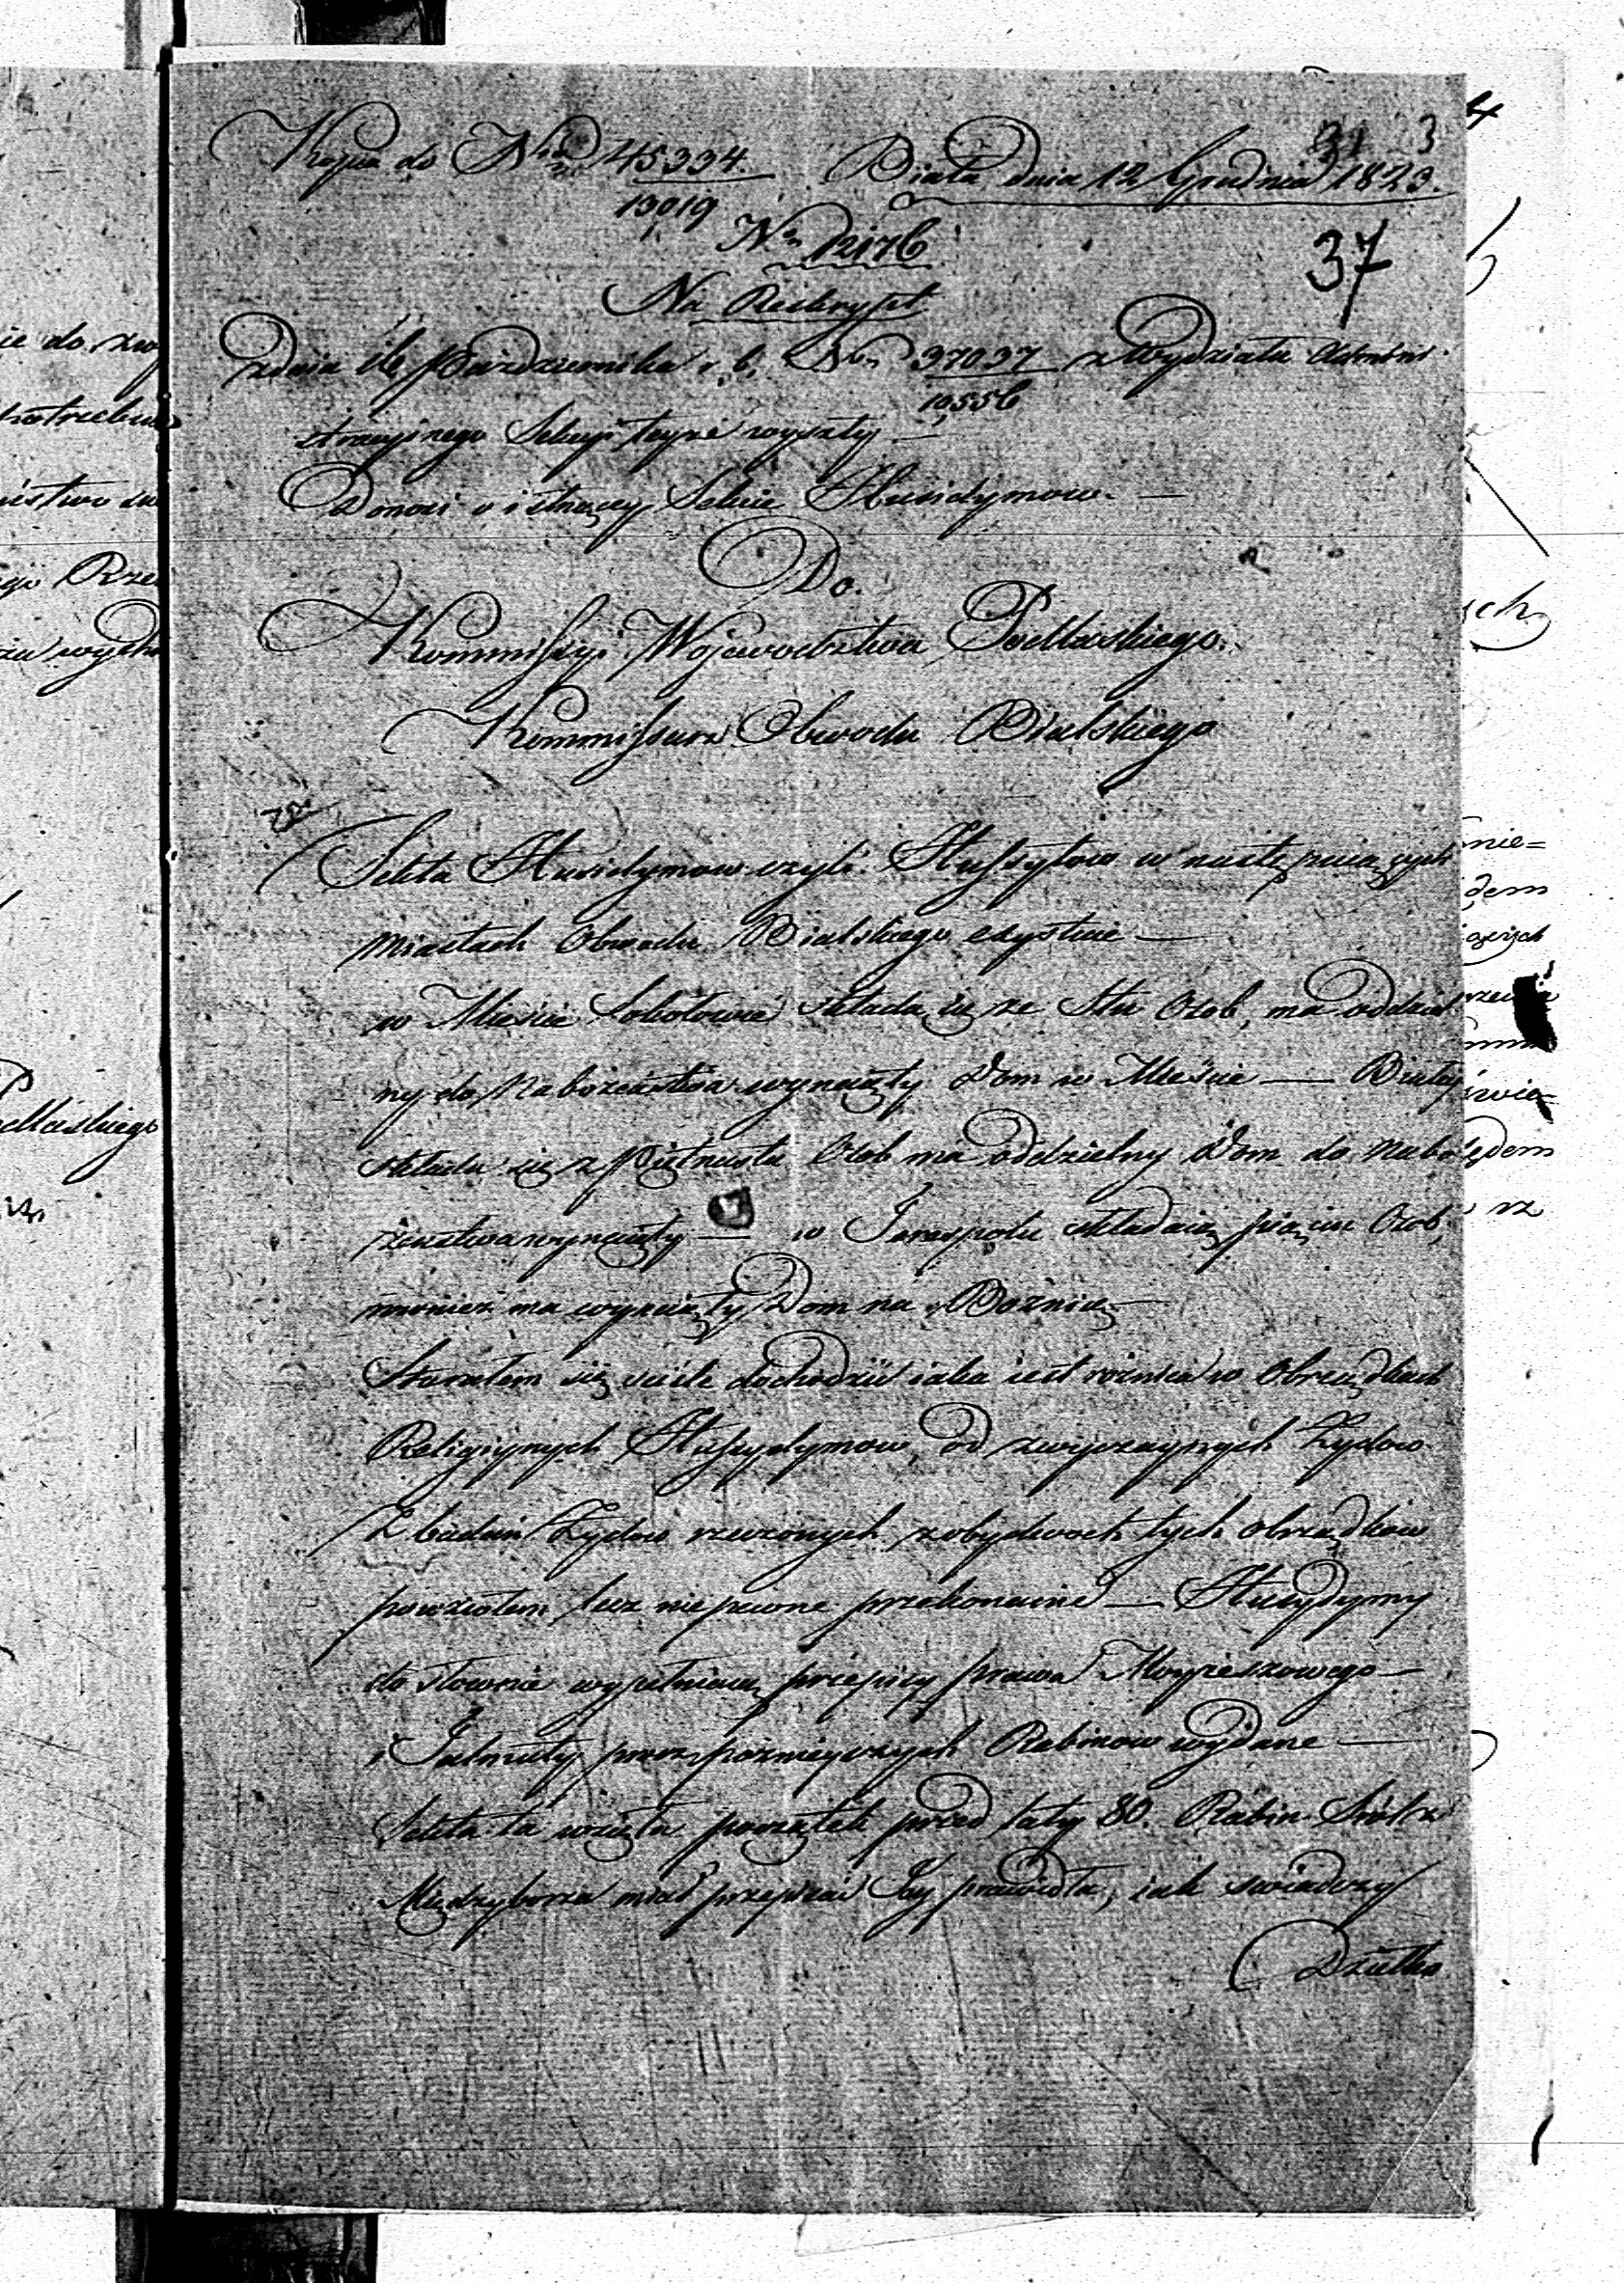 31 3
Kopia do Nru 45334. Biała dnia 12 Grudnia 1823.
13019
Nro 12176
37
Na Reskrypt
z dnia 16 Pazdziernika r. b. Nro 37037 z Wydziału Admini
10,556
stracyjnego Sekcyi teyże wyszły —
Donosi o istnącey Sekcie Husidymow. —
Do.
Kommissyi Wojewodztwa Podlaskiego.
Kommissarz Obwodu Bialskiego
Sekta Husidymow czyli Hussytow w następuiących
Miastach Obwodu Bialskiego exystuie —
w Mieście Sokołowie składa się ze Stu Osob, ma oddziel
ny do Nabożeństwa wynaięty Dom w Mieście — Białey
składa się z Piętnastu Osob ma oddzielny Dom do Nabo
żenstwa wynaięty — w Terespolu składaią piąciu Osob,
rownież ma wynaięty Dom na Bożnicę —
Starałem się ściśle dochodzić iaka iest rożnica w Obrządkach
Religiynych Hussydymow, od zwyczaynych Zydow
Z badań Zydow rzeczonych z obydwoch tych obrządkow
powziołem lecz nie pewne przekonanie — Husydymy
do słownie wypełniaią przepisy prawa Moyżeszowego —
i Talmuty przez poznieyszych Rabinow wydane —
Sekta ta wzięła początek przed laty 80. Rabin Sról z
Międzyborza miał przepisać Jey prawidła, iak swiadczy
Dziełko